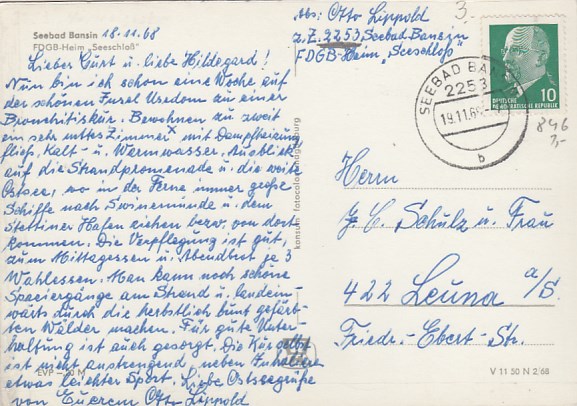 Seebad Bansin 18.11.68
FDGB-Heim „Seeschloß"
Lieber Curt u. liebe Hildegard!
Nun bin ich schon eine Woche auf
der schönen Insel Usedom zu einer
Bronchitiskur. Bewohnen zu zweit
ein sehr nettes Zimmer x mit Dampfheizung,
fließ. Kalt- u. Warmwasser, Ausblick
auf die Strandpromenade u. die weite
Ostsee, wo in der Ferne immer große
Schiffe nach Swinemünde u. dem
Stettiner Hafen ziehen bezw. von dort
kommen. Die Verpflegung ist gut,
zum Mittagessen u. Abendbrot je 3
Wahlessen. Man kann noch schöne
Spaziergänge am Strand u. landein-
wärts durch die herbstlich bunt gefärb-
ten Wälder machen. Für gute Unter-
haltung ist auch gesorgt. Die Kur selbst
ist nicht anstrengend, neben Inhalieren
etwas leichter Sport. Liebe Ostseegrüße
von Euerem Otto Lippold
EVP M
konsum fotocolor magdeburg
Abs: Otto Lippold
z. Z. 2253 Seebad Bansin
FDGB-Heim „Seeschloß"
3.-
SEEBAD BANSIN
2253
19.11.68
b
10
DEUTSCHE
DEMOKRATISCHE REPUBLIK
846
3,-
Herrn
Schulz u. Frau
422 Leuna a/S.
Friedr.-Ebert-Str.
V 11 50 N 2/68